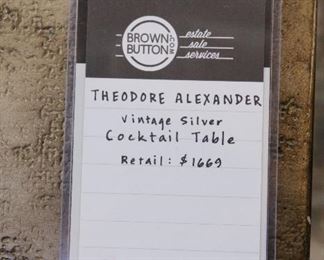 BROWN
BUTTON
.COM
estate
sale
services
THEODORE ALEXANDER
Vintage Silver
Cocktail Table
Retail: $1669